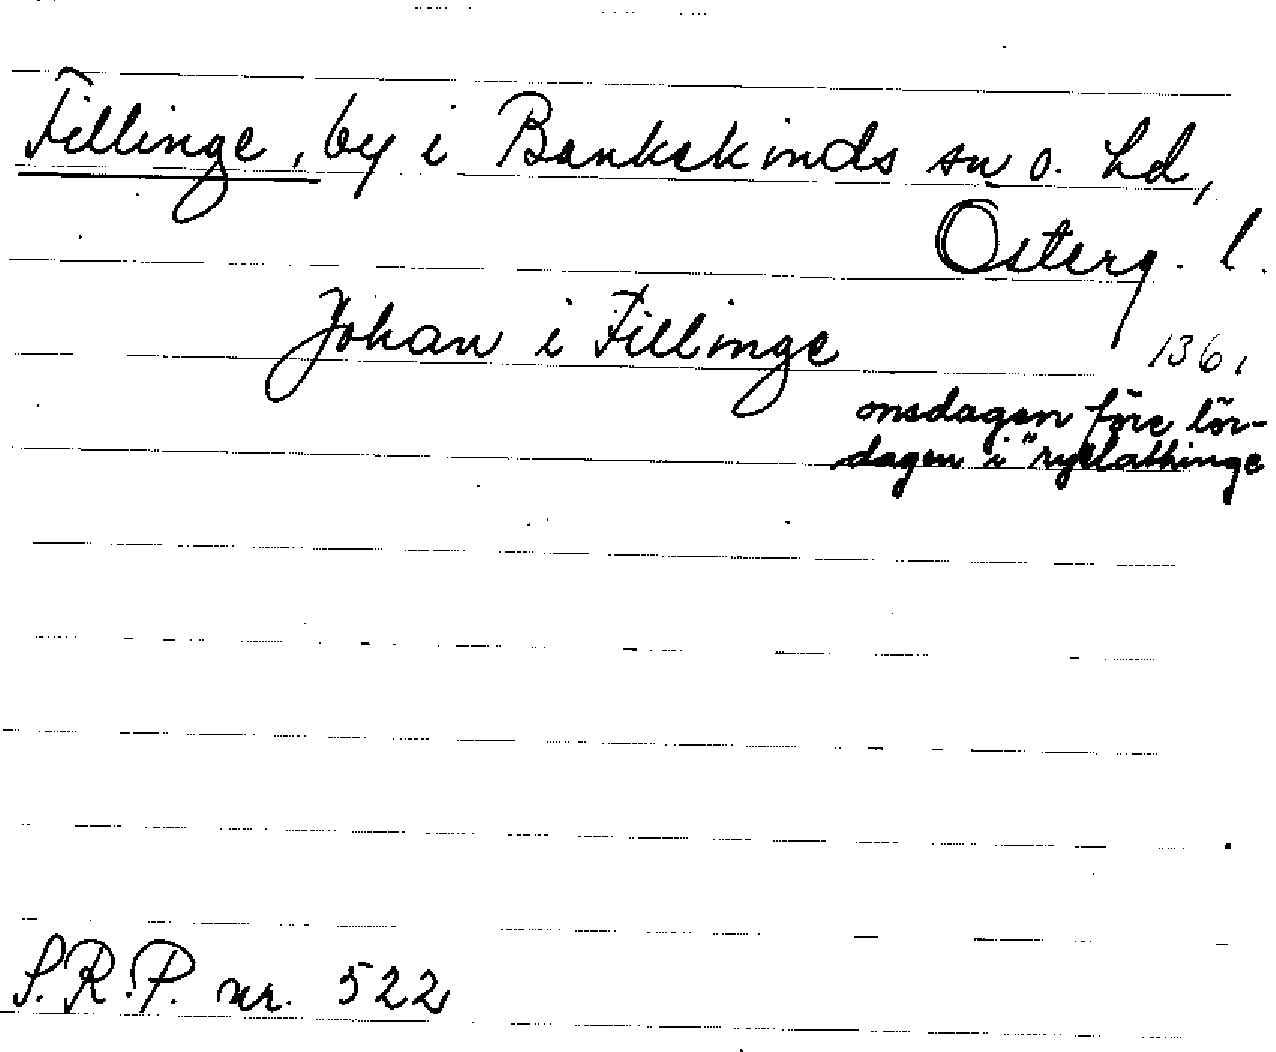 Fillinge, by i Bankekinds sn o. hd,
Österg. l.
Johan i Fillinge 1361
onsdagen före lör-
dagen i "ryklathinge
S.R.P. nr. 522